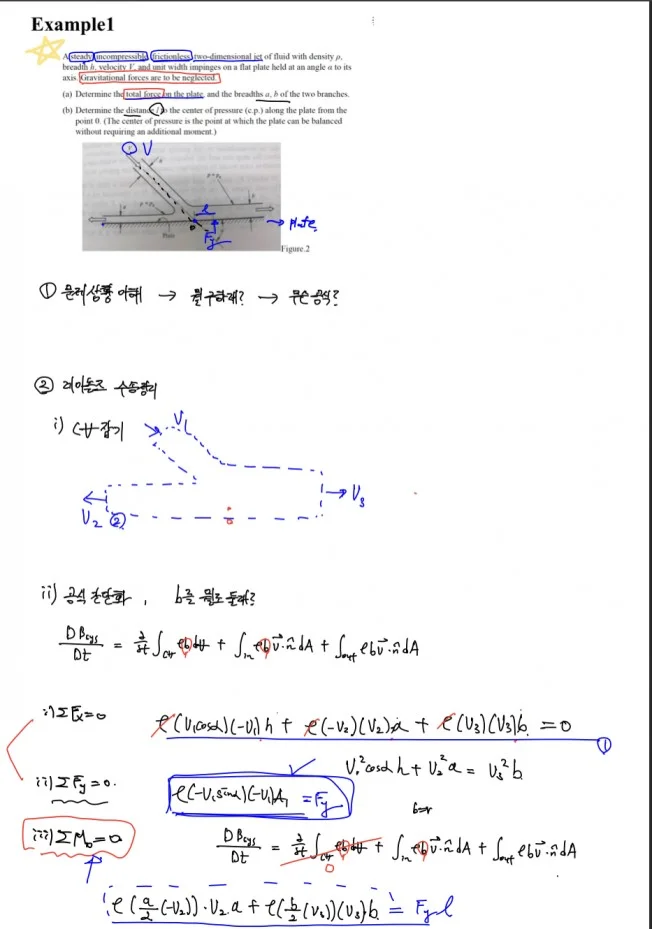 Example1
A steady, incompressible, frictionless, two-dimensional jet of fluid with density ρ,
breadth h, velocity V, and unit width impinges on a flat plate held at an angle α to its
axis. Gravitational forces are to be neglected.
(a) Determine the total force on the plate, and the breadths a, b of the two branches.
(b) Determine the distance l to the center of pressure (c.p.) along the plate from the
point 0. (The center of pressure is the point at which the plate can be balanced
without requiring an additional moment.)
① V
l
0
Fy
→ plate
Plate
Figure.2
① 문제상황 이해 → 뭘 구하래? → 무슨 공식?
② 레이놀즈 수송정리
i) CV 잡기
V₁
V₂ ②
→ V₃
0
ii) 공식 간단화, b를 뭘로 둘래?
DBsys/Dt = ∂/∂t ∫cv ρb dV + ∫in ρb v⃗·n̂ dA + ∫out ρb v⃗·n̂ dA
i) ΣFx=0
ρ(V₁cosα)(-V₁)h + ρ(-V₂)(V₂)a + ρ(V₃)(V₃)b = 0
①
V₁²cosα h + V₂²a = V₃²b
ii) ΣFy=0.
ρ(-V₁sinα)(-V₁)A₁ = Fy
iii) ΣM₀=0
DBsys/Dt = ∂/∂t ∫cv ρb dV + ∫in ρb v⃗·n̂ dA + ∫out ρb v⃗·n̂ dA
0
ρ(a/2(-V₂))·V₂a + ρ(b/2(V₃))(V₃)b = Fy l